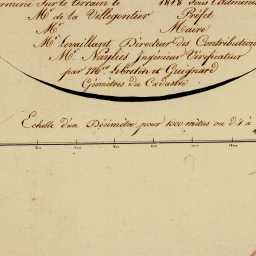 terminé Sur le terrain le 1818 Sous l'administ
Mr. de la Villegontier Préfet
Mr. Maire
Mr. Levaillant Directeur des Contributions
Mr. Naylies Ingénieur Vérificateur
par MMrs. Lebreton et Guignard
Géomètres du Cadastre
Echelle d'un Décimètre pour 1000 mètres ou d'1 à